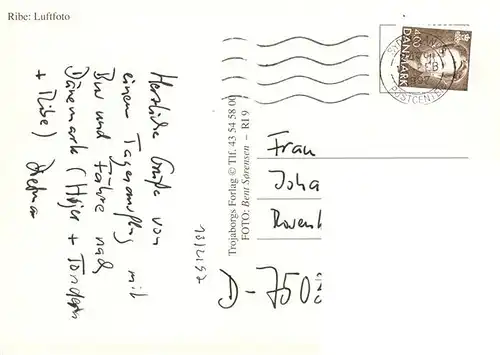 Ribe: Luftfoto
Herzliche Grüße von
einem Tagesausflug mit
Bus und Fähre nach
Dänemark (Højer + Tondern
+ Ribe) Dietmar
Trojaborgs Forlag © Tlf. 43 54 58 00
FOTO: Bent Sørensen – RI 9
400
DANMARK
POSTCENTER
Frau
Joha
D-750